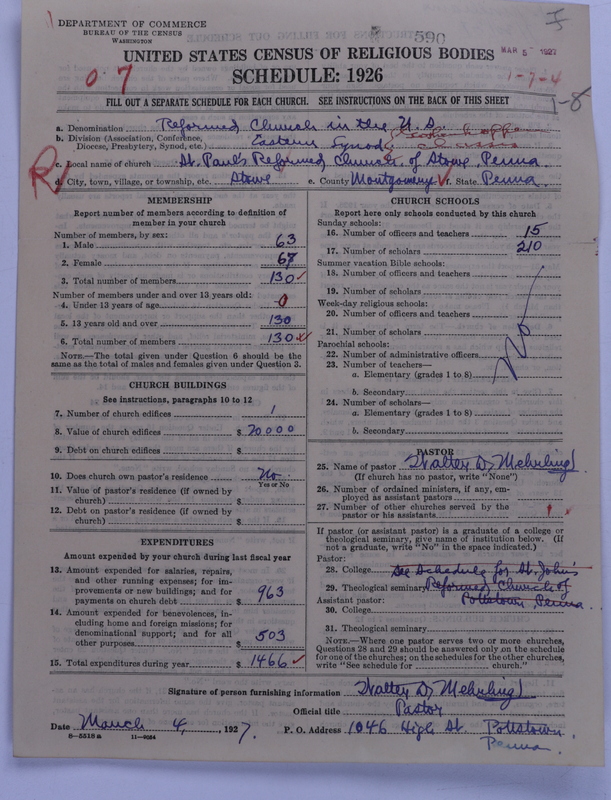 DEPARTMENT OF COMMERCE
BUREAU OF THE CENSUS
WASHINGTON
590
MAR 5 1927
UNITED STATES CENSUS OF RELIGIOUS BODIES
SCHEDULE: 1926
07
1-7-4
1-8
FILL OUT A SEPARATE SCHEDULE FOR EACH CHURCH. SEE INSTRUCTIONS ON THE BACK OF THIS SHEET
a. Denomination Reformed Church in the U.S.
b. Division (Association, Conference, Diocese, Presbytery, Synod, etc.) Eastern Synod; classis
c. Local name of church St. Paul's Reformed Church of Stowe, Penna
R
d. City, town, village, or township, etc. Stowe e. County Montgomery f. State Penna
MEMBERSHIP
Report number of members according to definition of member in your church
Number of members, by sex:
1. Male 63
2. Female 67
3. Total number of members 130
Number of members under and over 13 years old:
4. Under 13 years of age 0
5. 13 years old and over 130
6. Total number of members 130
NOTE.—The total given under Question 6 should be the same as the total of males and females given under Question 3.
CHURCH BUILDINGS
See instructions, paragraphs 10 to 12
7. Number of church edifices 1
8. Value of church edifices $ 20000
9. Debt on church edifices $
10. Does church own pastor's residence No.
Yes or No
11. Value of pastor's residence (if owned by church) $
12. Debt on pastor's residence (if owned by church) $
EXPENDITURES
Amount expended by your church during last fiscal year
13. Amount expended for salaries, repairs, and other running expenses; for improvements or new buildings; and for payments on church debt $ 963
14. Amount expended for benevolences, including home and foreign missions; for denominational support; and for all other purposes $ 503
15. Total expenditures during year $ 1466
CHURCH SCHOOLS
Report here only schools conducted by this church
Sunday schools:
16. Number of officers and teachers 15
17. Number of scholars 210
Summer vacation Bible schools:
18. Number of officers and teachers
19. Number of scholars
Week-day religious schools:
20. Number of officers and teachers
21. Number of scholars
No
Parochial schools:
22. Number of administrative officers
23. Number of teachers—
a. Elementary (grades 1 to 8)
b. Secondary
24. Number of scholars—
a. Elementary (grades 1 to 8)
b. Secondary
PASTOR
25. Name of pastor Walter D. Mehrling
(If church has no pastor, write "None")
26. Number of ordained ministers, if any, employed as assistant pastors
27. Number of other churches served by the pastor or his assistants 1
If pastor (or assistant pastor) is a graduate of a college or theological seminary, give name of institution below. (If not a graduate, write "No" in the space indicated.)
Pastor:
28. College See Schedule for St. John's
29. Theological seminary Reformed Church of
Assistant pastor: Pottstown, Penna
30. College
31. Theological seminary
NOTE.—Where one pastor serves two or more churches, Questions 28 and 29 should be answered only on the schedule for one of the churches; on the schedules for the other churches, write "See schedule for ............ church."
Signature of person furnishing information Walter D. Mehrling
Official title Pastor
Date March 4, 1927. P. O. Address 1046 High St. Pottstown
Penna.
8-5318a 11-9024